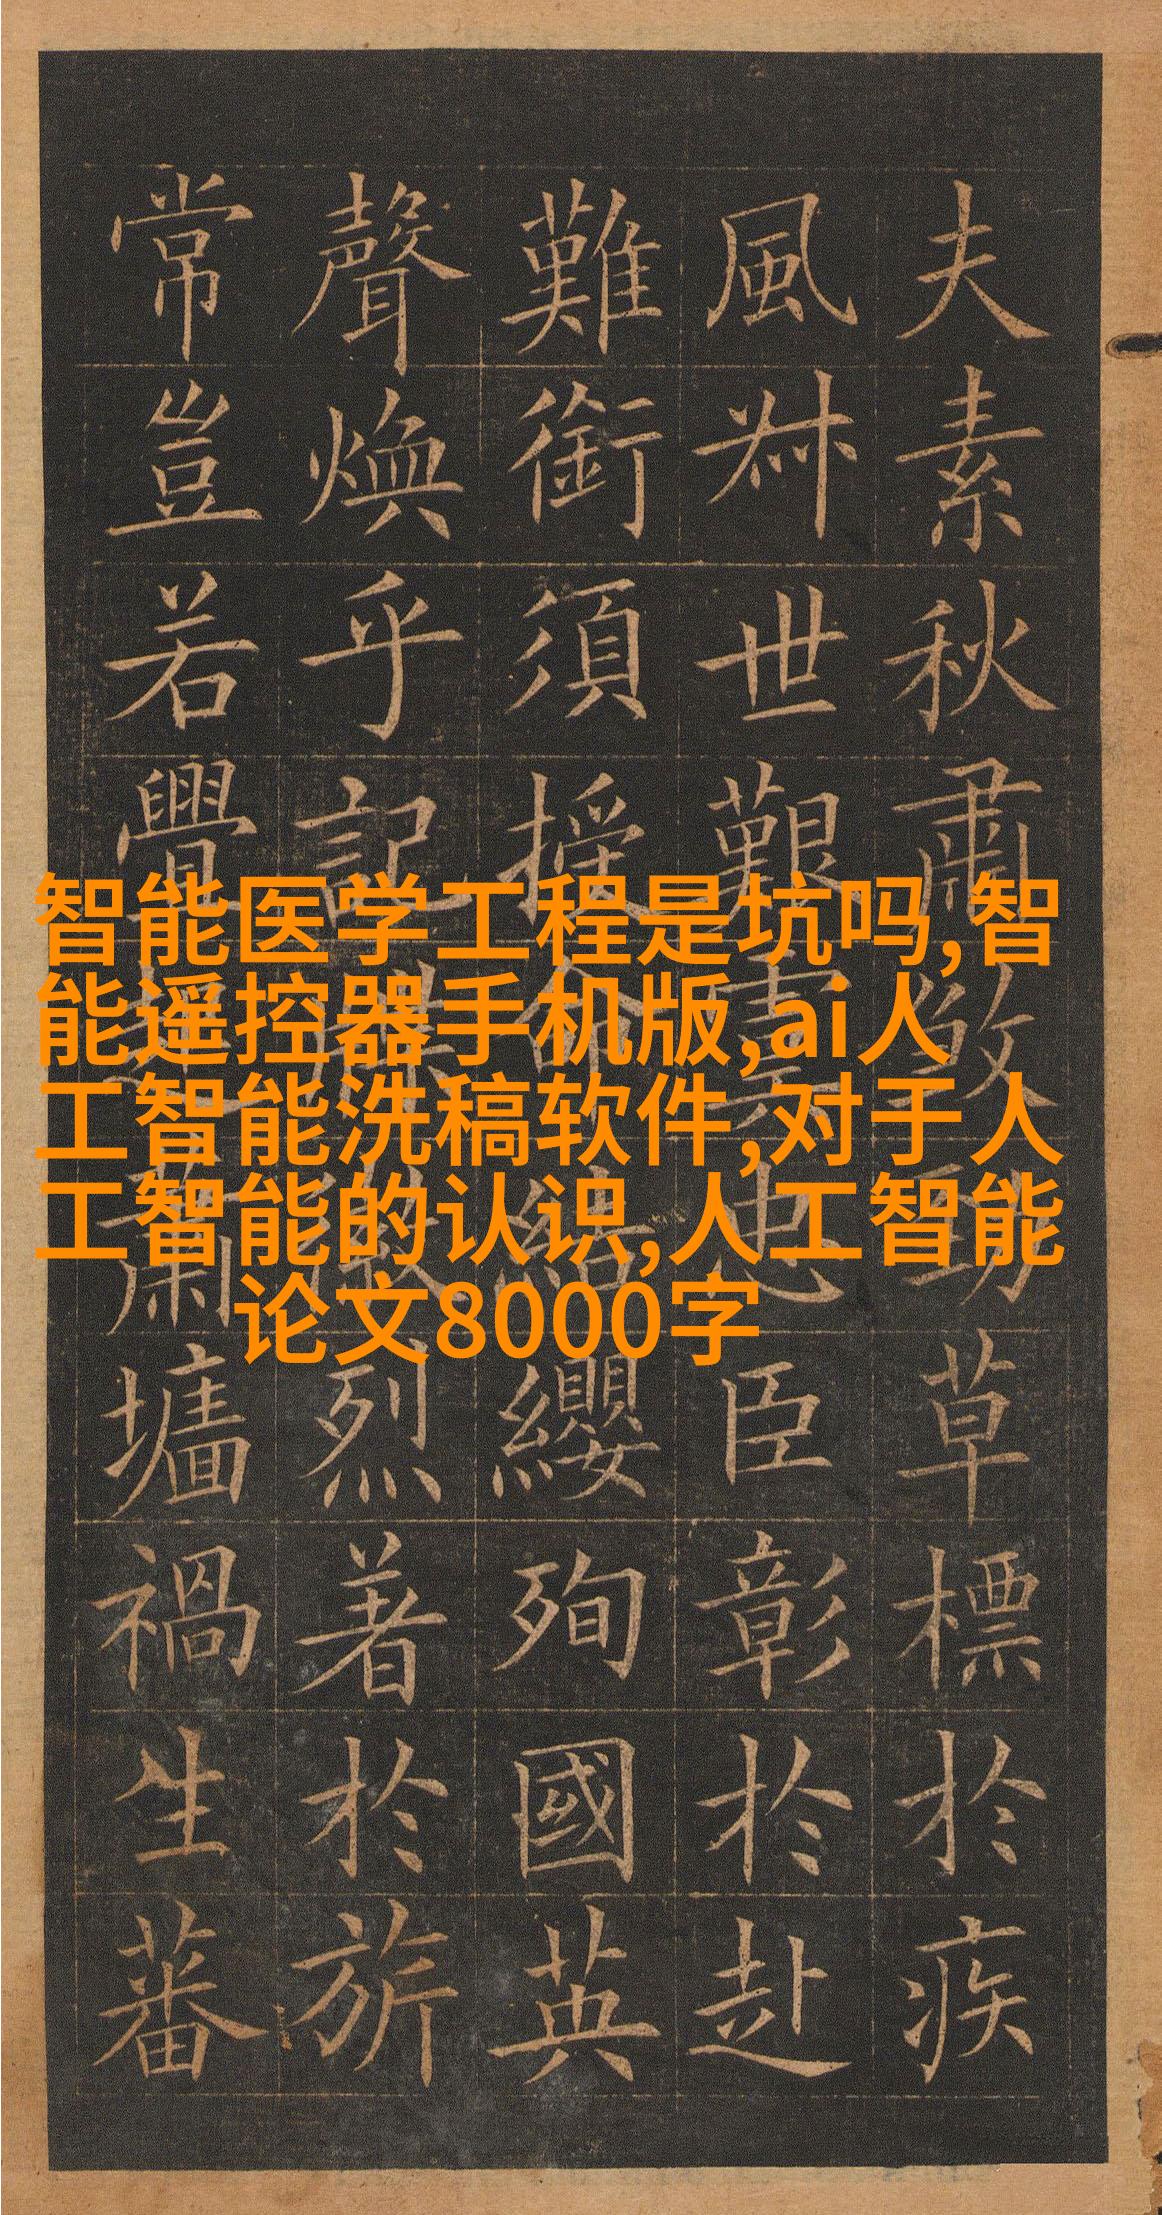 夫素秋肅煞勁草標於疾
風叔世艱虞忠臣彰於赴
難銜須授命結纓殉國英
聲煥乎記烈著於旂
常豈若釁蕭墻禍生蕃
智能医学工程是坑吗,智
能遥控器手机版,ai人
工智能洗稿软件,对于人
工智能的认识,人工智能
论文8000字